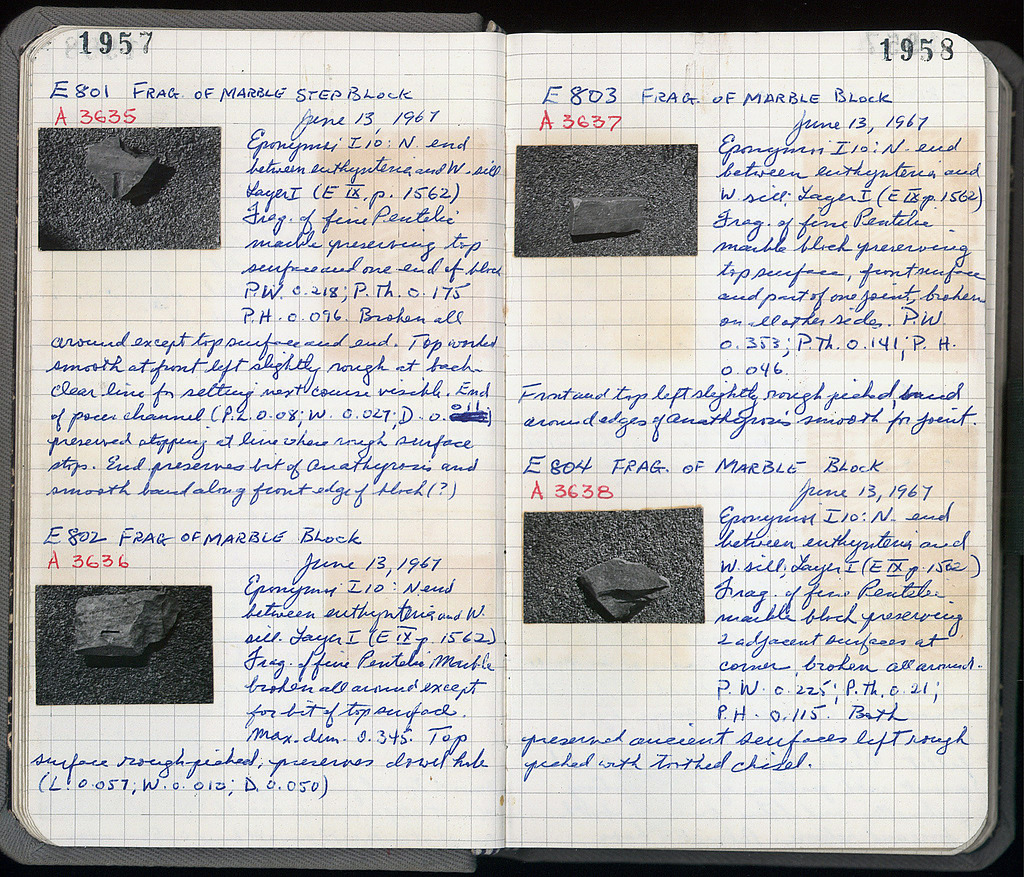 1957
E 801 FRAG. OF MARBLE STEP BLOCK
A 3635
June 13, 1967
Eponymoi I 10: N. end
between euthynteria and W. sill
Layer I (E IX, p. 1562)
Frag. of fine Pentelic
marble preserving top
surface and one end of block
P.W. 0.218; P.Th. 0.175
P.H. 0.096. Broken all
around except top surface and end. Top worked
smooth at front left slightly rough at back
clear line for setting next course visible. End
of pour channel (P.L. 0.08; W. 0.027; D. 0.011)
preserved stopping at line where rough surface
stops. End preserves bit of anathyrosis and
smooth band along front edge of block (?)
E 802 FRAG OF MARBLE BLOCK
A 3636
June 13, 1967
Eponymoi I 10: N end
between euthynteria and W.
sill. Layer I (E IX p. 1562)
Frag. of fine Pentelic Marble
broken all around except
for bit of top surface.
Max. dim. 0.345. Top
surface rough picked, preserves dowel hole
(L. 0.057; W. 0.012; D. 0.050)
1958
E 803 FRAG. OF MARBLE BLOCK
A 3637
June 13, 1967
Eponymoi I 10: N. end
between euthynteria and
W. sill, Layer I (E IX p. 1562)
Frag. of fine Pentelic
marble block preserving
top surface, front surface
and part of one joint, broken
on all other sides. P.W.
0.353; P.Th. 0.141; P. H.
0.046.
Front and top left slightly rough picked, band
around edges of anathyrosis smooth for joint.
E 804 FRAG. OF MARBLE BLOCK
A 3638
June 13, 1967
Eponymoi I 10: N. end
between euthynteria and
W. sill, Layer I (E IX p. 1562)
Frag. of fine Pentelic
marble block preserving
2 adjacent surfaces at
corner, broken all around.
P.W. 0.225; P.Th. 0.21;
P.H. 0.115. Both
preserved ancient surfaces left rough
picked with toothed chisel.